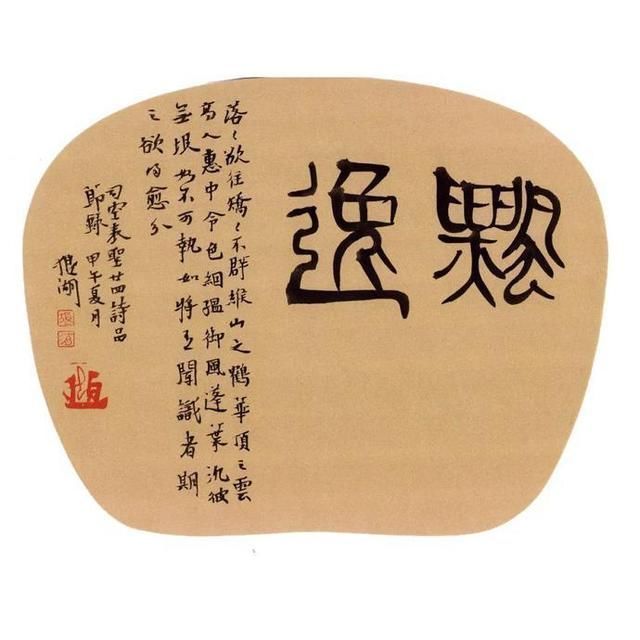 飄逸
落〻欲往矯〻不群緱山之鶴華頂之雲
高人惠中令色絪縕御風蓬葉汎彼
無垠如不可執如將有聞識者期
之欲得愈分
司空表聖廿四詩品
節録 甲午夏月
湖